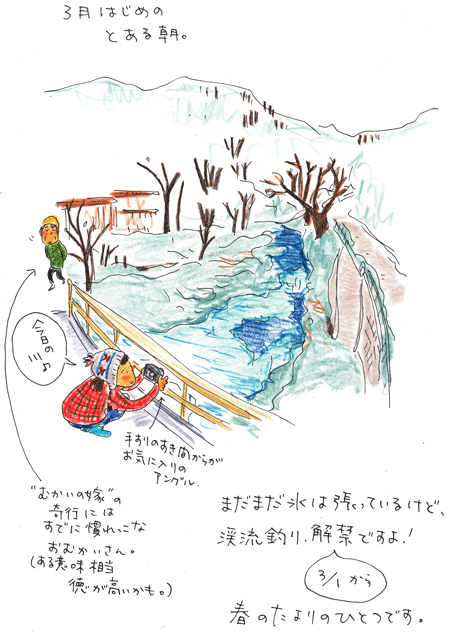 3月はじめの
とある朝。
今日の
川♪
手すりのすき間からが
お気に入りの
アングル。
"むかいの嫁"の
奇行には
すでに慣れっこな
おむかいさん。
(ある意味相当
徳が高いかも。)
まだまだ氷は張っているけど、
渓流釣り、解禁ですよ!
3/1から
春のたよりのひとつです。